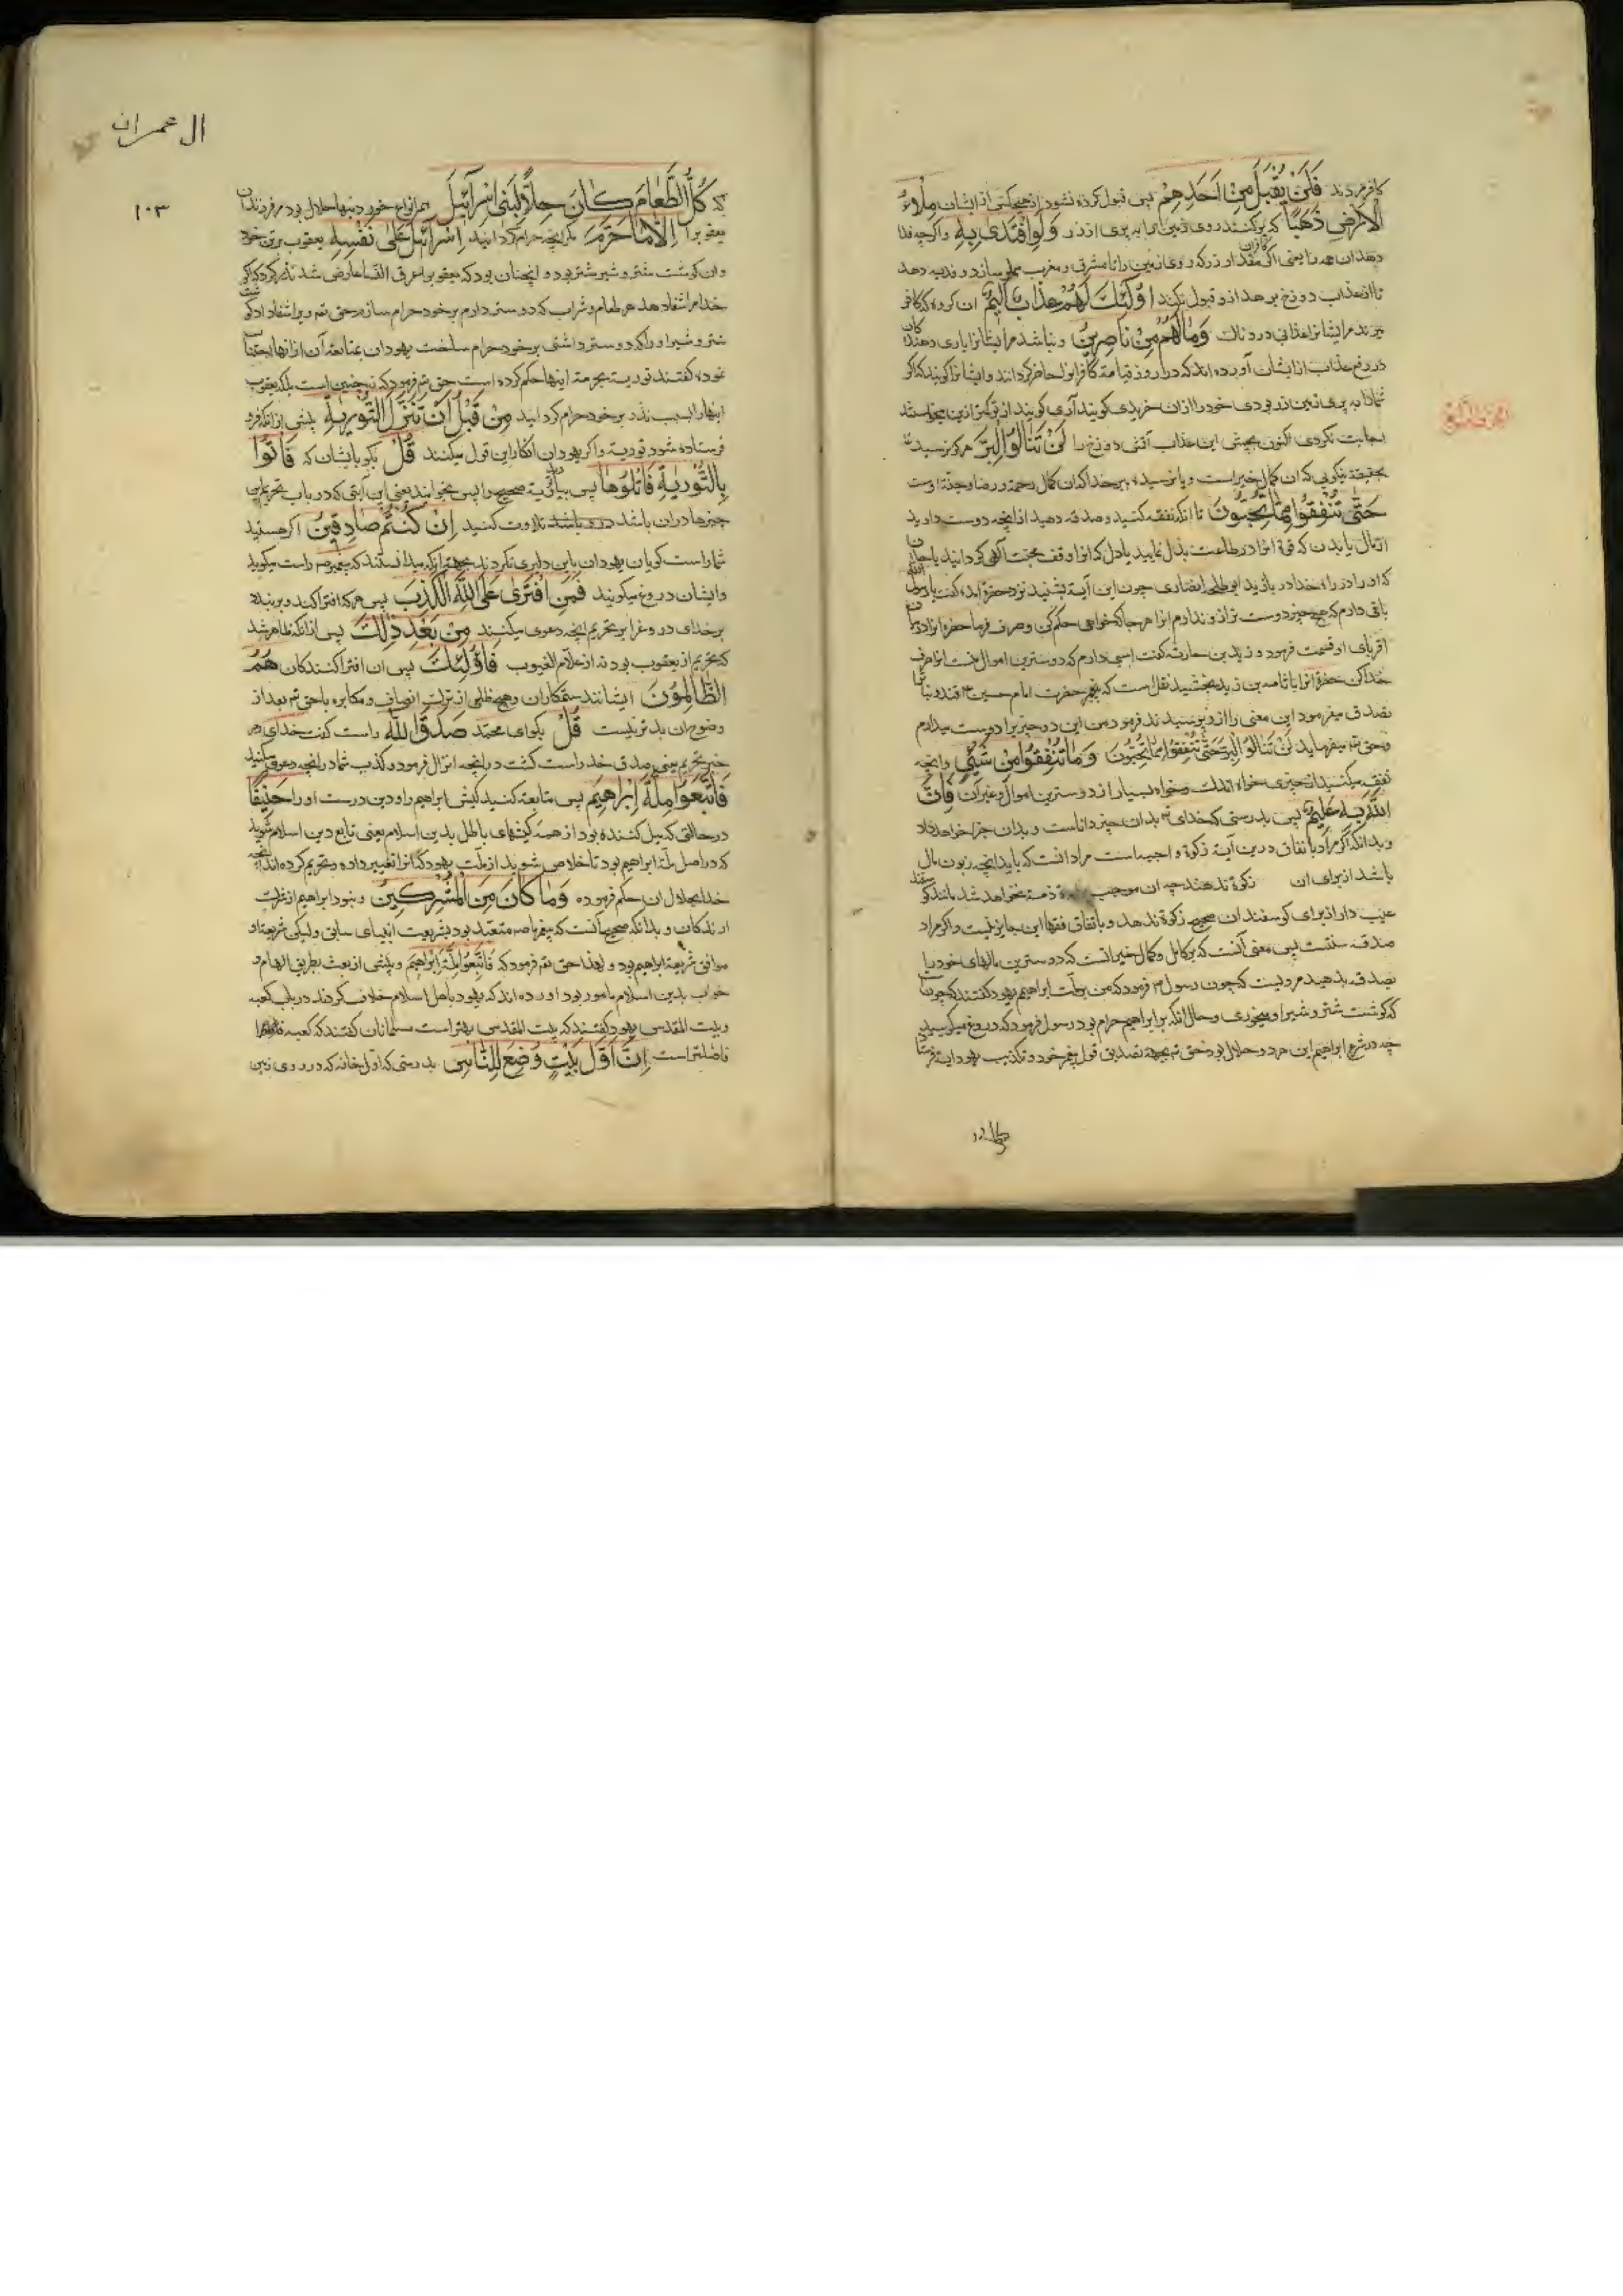 کافر مردند فَلَنْ یُقْبَلَ مِنْ اَحَدِهِمْ پس قبول کرده نشود از هیچکس از ایشان مِلْءُ
الْاَرْضِ ذَهَبًا که پر کنند روی زمین را به پری از زر وَلَوِ افْتَدٰی بِهِ و اگرچه فدا
دهد ان همه را یعنی اگر کافران مقدار زر که روی زمین را تا مشرق و مغرب مملو سازد و فدیه دهد
تا از عذاب دوزخ برهد ازو قبول نکنند اُولٰئِکَ لَهُمْ عَذَابٌ اَلِیمٌ ان کروه که کافر
میرند مر ایشانرا عذابی دردناک وَمَا لَهُمْ مِنْ نَاصِرِینَ و نباشد مر ایشانرا یاری دهندکان
در رفع عذاب از ایشان آورده اند که در روز قیامة کافرانرا حاضر کردانند و ایشانرا کویند که اکر
شما را به پری زمین زر بودی خود را از ان خریدی کویند آری کویند از تو کمتر ازین میخواستند
اجابت نکردی اکنون بچش این عذاب آتش دوزخ را لَنْ تَنَالُوا الْبِرَّ هرکز نرسید
بحقیقة نیکویی که ان کمال خیر است و یا نرسید ببر خدا که ان کمال رحمة و رضا و جنة اوست
حَتّٰی تُنْفِقُوا مِمَّا تُحِبُّونَ تا انکه نفقه کنید و صدقه دهید از آنچه دوست دارید
از مال یا بدن که قوة انرا در طاعت بذل نمایید یا دل که انرا وقف محبت الهی کردانید یا جان
که او را در راه خدا در بازید ابو طلحه انصاری چون این آیة بشنید نزد حضرة امد و کفت یا رسول الله
باغی دارم که هیچ چیز دوست تر ازو ندارم انرا هر جا که خواهی حکم کن و صرف فرما حضرة انرا در میان
اقربای او قسمت فرمود و زید بن حارثه کفت اسبی دارم که دوسترین اموال منست انرا صرف
خدا کن حضرة انرا باسامه بن زید بخشید نقل است که حضرت امام حسین قند و نبات
تصدق میفرمود این معنی را ازو پرسیدند فرمود من این دو چیز را دوست میدارم
و حق تع میفرماید لَنْ تَنَالُوا الْبِرَّ حَتّٰی تُنْفِقُوا مِمَّا تُحِبُّونَ وَمَا تُنْفِقُوا مِنْ شَیْءٍ و انچه
نفقه میکنید از چیزی خواه اندک و خواه بسیار از دوسترین اموال و غیر آن فَاِنَّ
اللّٰهَ بِهِ عَلِیمٌ پس بدرستی که خدای تع بدان چیز داناست و بدان جزا خواهد داد
و بدانکه اکر مراد بانفاق درین آیة زکوة واجبه است مراد انست که باید انچه زبون مال
باشد از برای ان زکوة ندهند چه ان موجب ذمة نخواهد شد مانند کوسفند
عیب دار از برای کوسفندان صحیح زکوة ندهد و باتفاق فقها این جایز نیست و اکر مراد
صدقه سنتست پس معنی آنست که بر کامل و کمال خیر انست که دوسترین مالهای خود را
بصدقه بدهید مرویست که چون رسول فرمود که من بر ملت ابراهیم یهود کفتند که چون است
که کوشت شتر و شیر او میخوری و حال انکه بر ابراهیم حرام بود رسول فرمود که دروغ میکویید
چه در شرع ابراهیم این هر دو حلال بود حق تع بجهة تصدیق قول پیغمبر خود و تکذیب یهود آیة فرستاد
ال عمران
۱۰۳
که کُلُّ الطَّعَامِ کَانَ حِلًّا لِبَنِی اِسْرَآئِیلَ همه انواع خوردنیها حلال بود مر فرزندان
یعقوب را اِلَّا مَا حَرَّمَ مکر انچه حرام کردانید اِسْرَآئِیلُ عَلٰی نَفْسِهِ یعقوب بر تن خود
و ان کوشت شتر و شیر شتر بود و انچنان بود که یعقوب را عرق النسا عارض شد نذر کرد که اکر
خدا مرا شفا دهد هر طعام و شراب که دوستر دارم بر خود حرام سازم حق تع ویرا شفا داد کوشت
شتر و شیر او را که دوستر داشتی بر خود حرام ساخت یهودان بمتابعة آن از انها اجتناب
نموده کفتند توریة بحرمة اینها حکم کرده است حق تع فرمود که نه چنین است بلکه یعقوب
اینها را بسبب نذر بر خود حرام کردانید مِنْ قَبْلِ اَنْ تُنَزَّلَ التَّوْرٰیةُ پیش از انکه فرو
فرستاده شود توریة و اکر یهودان انکار این قول میکنند قُلْ بکو بایشان که فَأْتُوا
بِالتَّوْرٰیةِ فَاتْلُوهَا پس بیارید توریة صحیح را پس بخوانید یعنی این آیتی که در باب تحریم این
چیزها در ان باشد درو باشد تلاوت کنید اِنْ کُنْتُمْ صَادِقِینَ اکر هستید
شما راست کویان یهودان باین دلیری نکردند بجهة انکه میدانستند که پیغمبر ص راست میکوید
و ایشان دروغ میکویند فَمَنِ افْتَرٰی عَلَی اللّٰهِ الْکَذِبَ پس هرکه افترا کند و بربندد
بر خدای دروغ را بر تحریم انچه دعوی میکنند مِنْ بَعْدِ ذٰلِکَ پس از انکه ظاهر شد
که تحریم از یعقوب بود نه از علام الغیوب فَاُولٰئِکَ پس ان افترا کنندکان هُمُ
الظَّالِمُونَ ایشانند ستمکاران و هیچ ظلمی از ترک انصاف و مکابره با حق تع بعد از
وضوح ان بدتر نیست قُلْ بکو ای محمد صَدَقَ اللّٰهُ راست کفت خدای در
خبر تحریم یعنی صدق خدا راست کشت در انچه انزال فرمود و کذب شما در انچه دعوی میکنید
فَاتَّبِعُوا مِلَّةَ اِبْرَاهِیمَ پس متابعة کنید کیش ابراهیم را و دین درست او را حَنِیفًا
در حالتی که میل کننده بود از همه کیشهای باطل بدین اسلام یعنی تابع دین اسلام شوید
که در اصل ملة ابراهیم بود تا خلاص شوید از ملت یهود که انرا تغییر داده و تحریم کرده اند انچه
خدا بحلال ان حکم فرموده وَمَا کَانَ مِنَ الْمُشْرِکِینَ و نبود ابراهیم از شرک
ارندکان و بدانکه صحیح آنست که پیغمبر ما ص متعبد نبود بشریعت انبیای سابق ولیکن شریعة او
موافق شریعة ابراهیم بود و لهذا حق تع فرمود که فَاتَّبِعُوا مِلَّةَ اِبْرَاهِیمَ و پیش از بعث بطریق الهام و
خواب بدین اسلام مامور بود اورده اند که یهود با اهل اسلام خلاف کردند در باب کعبه
و بیت المقدس یهود کفتند که بیت المقدس بهتر است مسلمانان کفتند که کعبه
فاضلتر است اِنَّ اَوَّلَ بَیْتٍ وُضِعَ لِلنَّاسِ بدرستی که اول خانه که در روی زمین